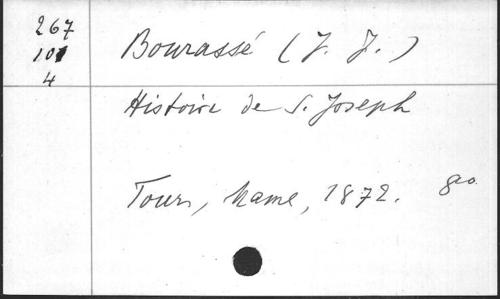 267
101
4
Bourassé (J. J.)
Histoire de S. Joseph
Tours, Mame, 1872. 8o.